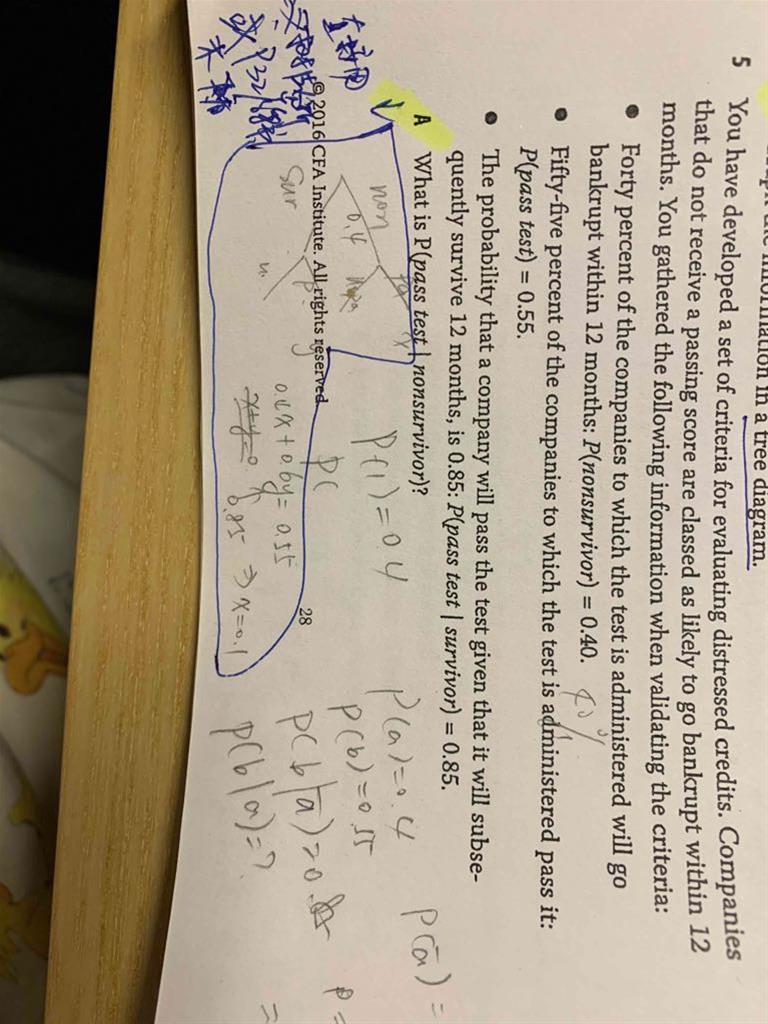 information in a tree diagram.
5 You have developed a set of criteria for evaluating distressed credits. Companies
that do not receive a passing score are classed as likely to go bankrupt within 12
months. You gathered the following information when validating the criteria:
• Forty percent of the companies to which the test is administered will go
bankrupt within 12 months: P(nonsurvivor) = 0.40.
• Fifty-five percent of the companies to which the test is administered pass it:
P(pass test) = 0.55.
• The probability that a company will pass the test given that it will subse-
quently survive 12 months, is 0.85: P(pass test | survivor) = 0.85.
A What is P(pass test | nonsurvivor)?
non
0.4
x
sur
P(1) = 0.4
P(
0.4x + 0.6y = 0.55
0.85 ⇒ x = 0.1
P(a) = 0.4
P(b) = 0.55
P(b|a)=?
P(ā) =
P =
=
© 2016 CFA Institute. All rights reserved
28